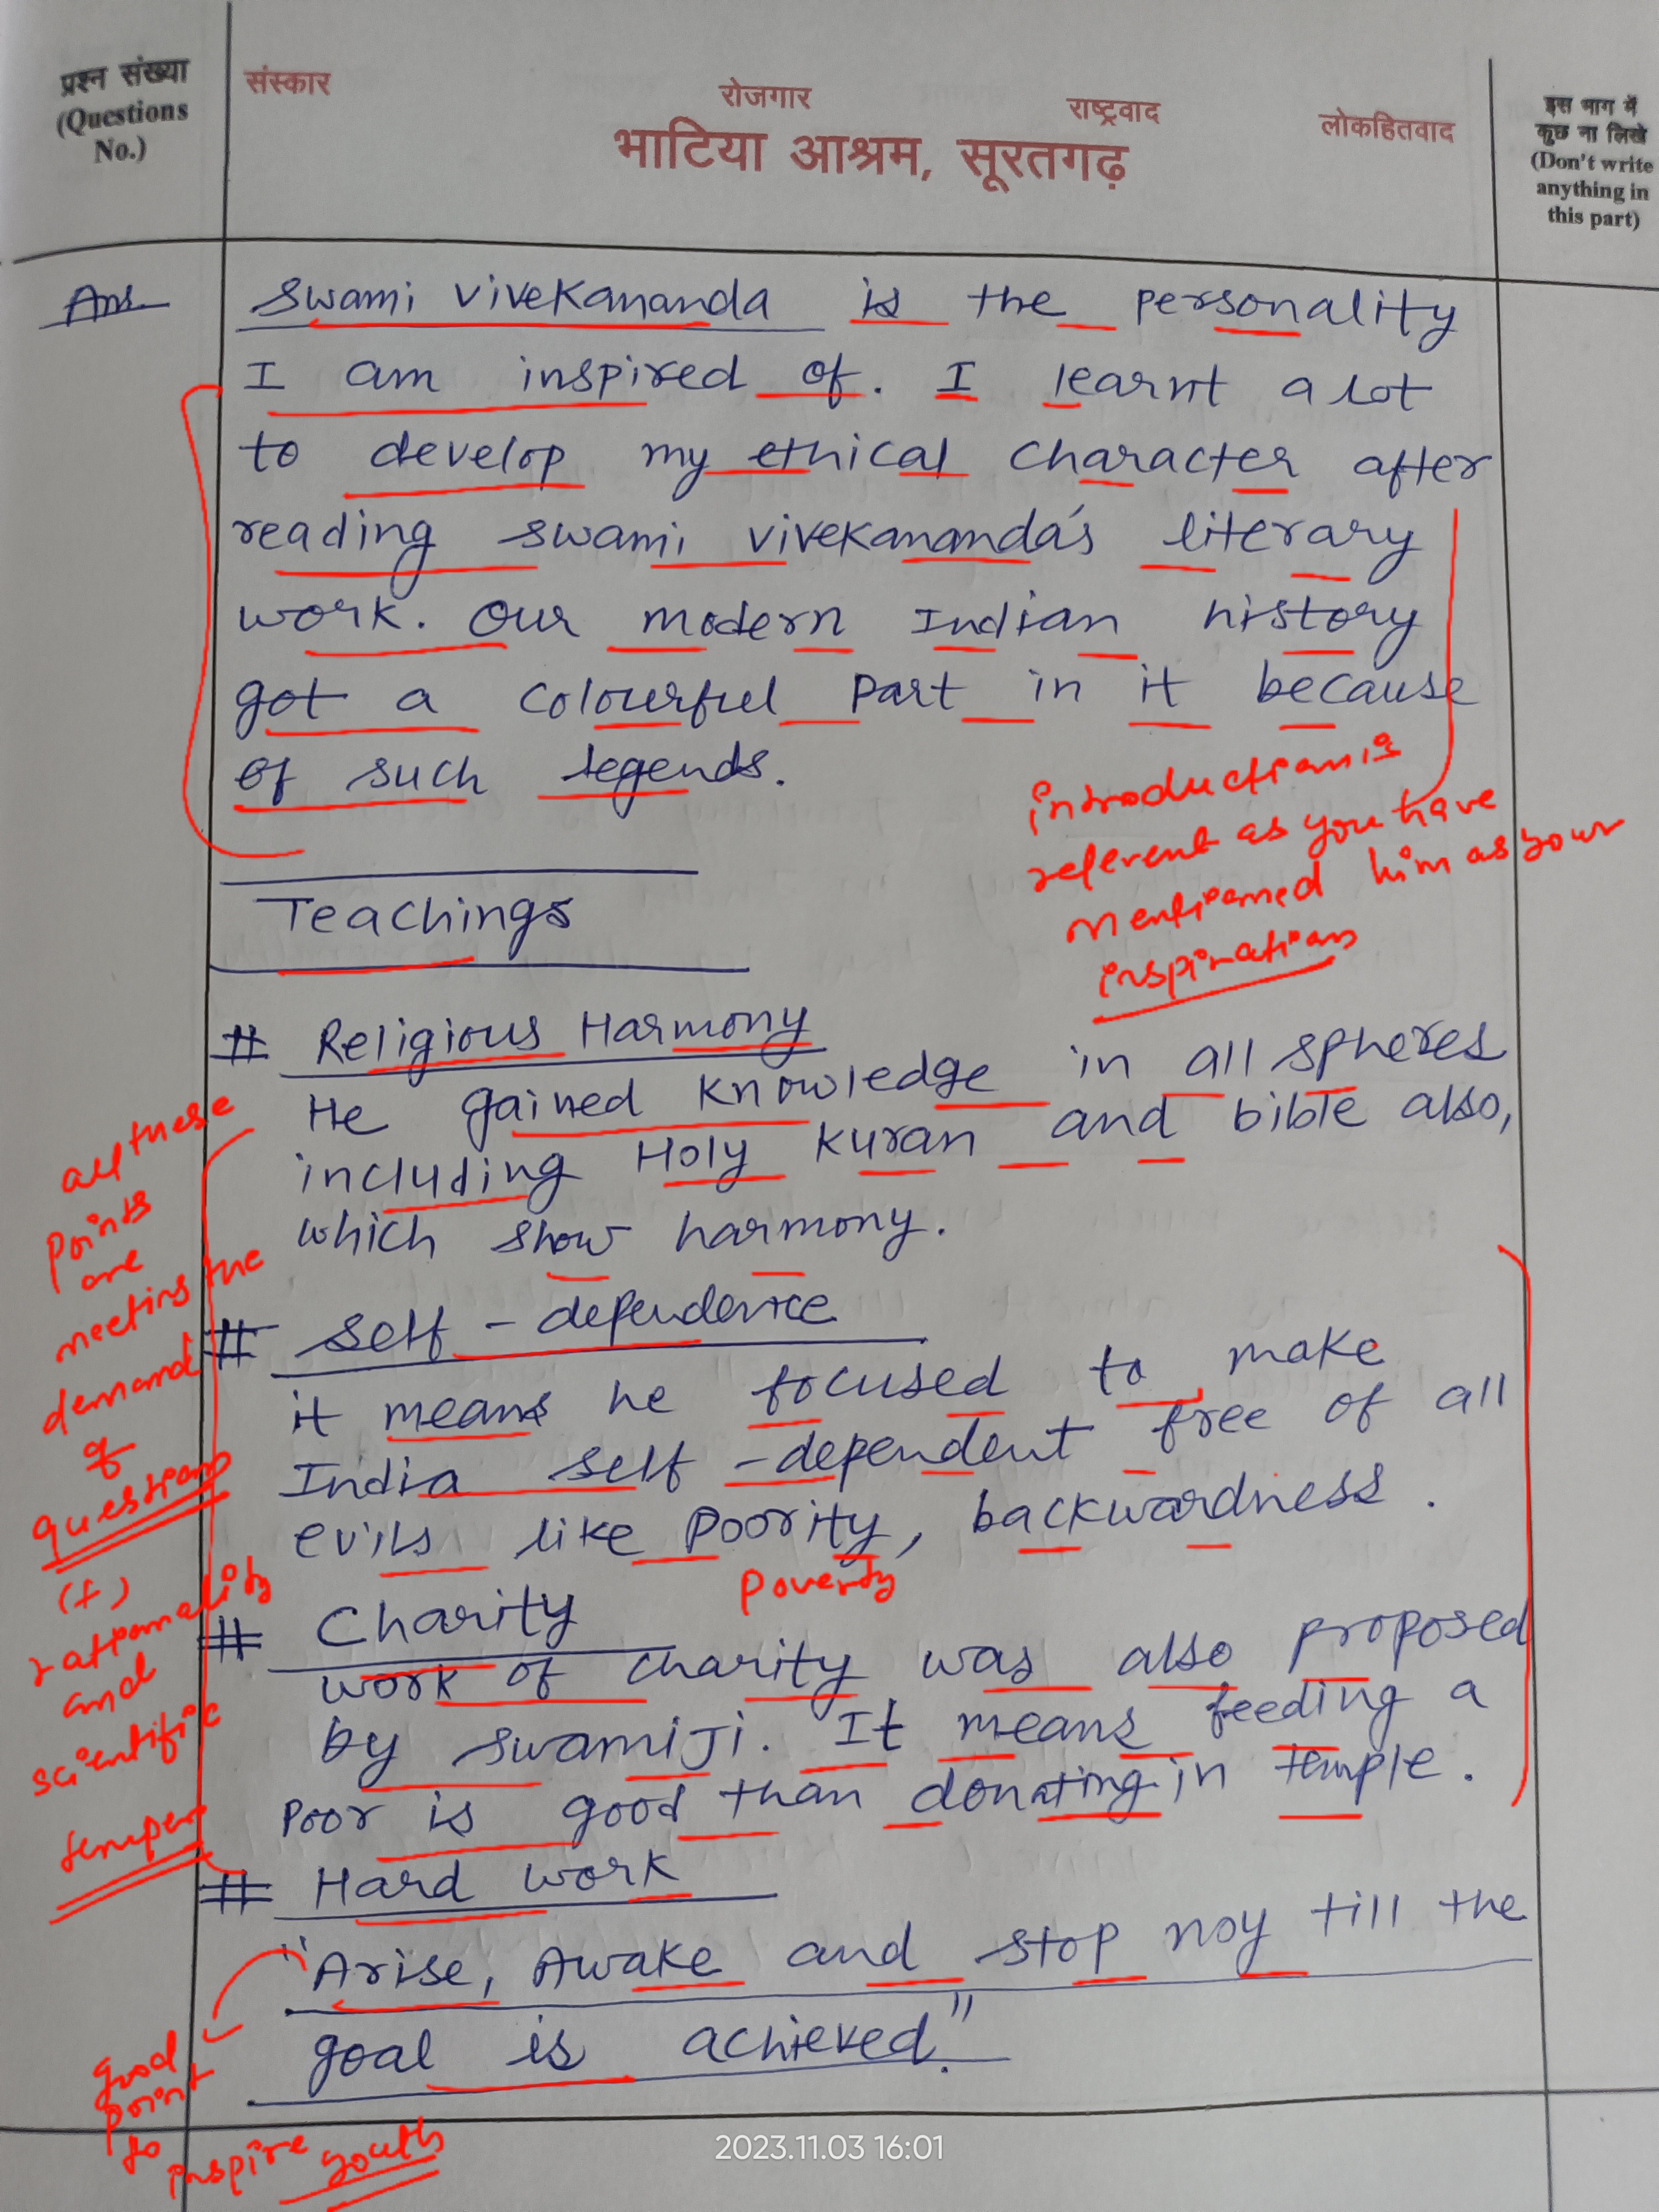 प्रश्न संख्या
(Questions
No.)
संस्कार
रोजगार
राष्ट्रवाद
लोकहितवाद
भाटिया आश्रम, सूरतगढ़
इस भाग में
कुछ ना लिखे
(Don't write
anything in
this part)
Ans
Swami Vivekananda is the personality
I am inspired of. I learnt a lot
to develop my ethical character after
reading swami vivekananda's literary
work. Our modern Indian history
got a colourful part in it because
of such legends.
introduction is
referent as you have
mentioned him as your
inspiration
Teachings
# Religious Harmony
He gained knowledge in all spheres
including Holy kuran and bible also,
which show harmony.
# Self - dependence
it means he focused to make
India self - dependent free of all
evils like poority, backwardness.
poverty
# Charity
work of charity was also proposed
by swamiji. It means feeding a
poor is good than donating in temple.
# Hard work
"Arise, Awake and stop noy till the
goal is achieved."
all these
points
are
meeting the
demand
of
question
(f)
rationality
and
scientific
temper
good
point
to
inspire youth
2023.11.03 16:01